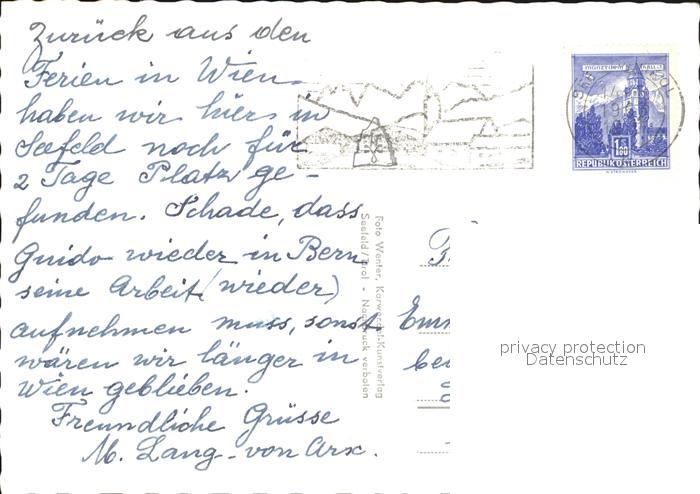 Zurück aus den
Ferien in Wien
haben wir hier in
Seefeld noch für
2 Tage Platz ge-
funden. Schade, dass
Guido wieder in Bern
seine Arbeit (wieder)
aufnehmen muss, sonst
wären wir länger in
Wien geblieben.
Freundliche Grüsse
M. Lang-von Arx.
Foto Wenter, Karwendel-Kunstverlag
Seefeld/Tirol - Nachdruck verboten
MÜNZTURM HALL I. T.
1.80
REPUBLIK ÖSTERREICH
privacy protection
Datenschutz